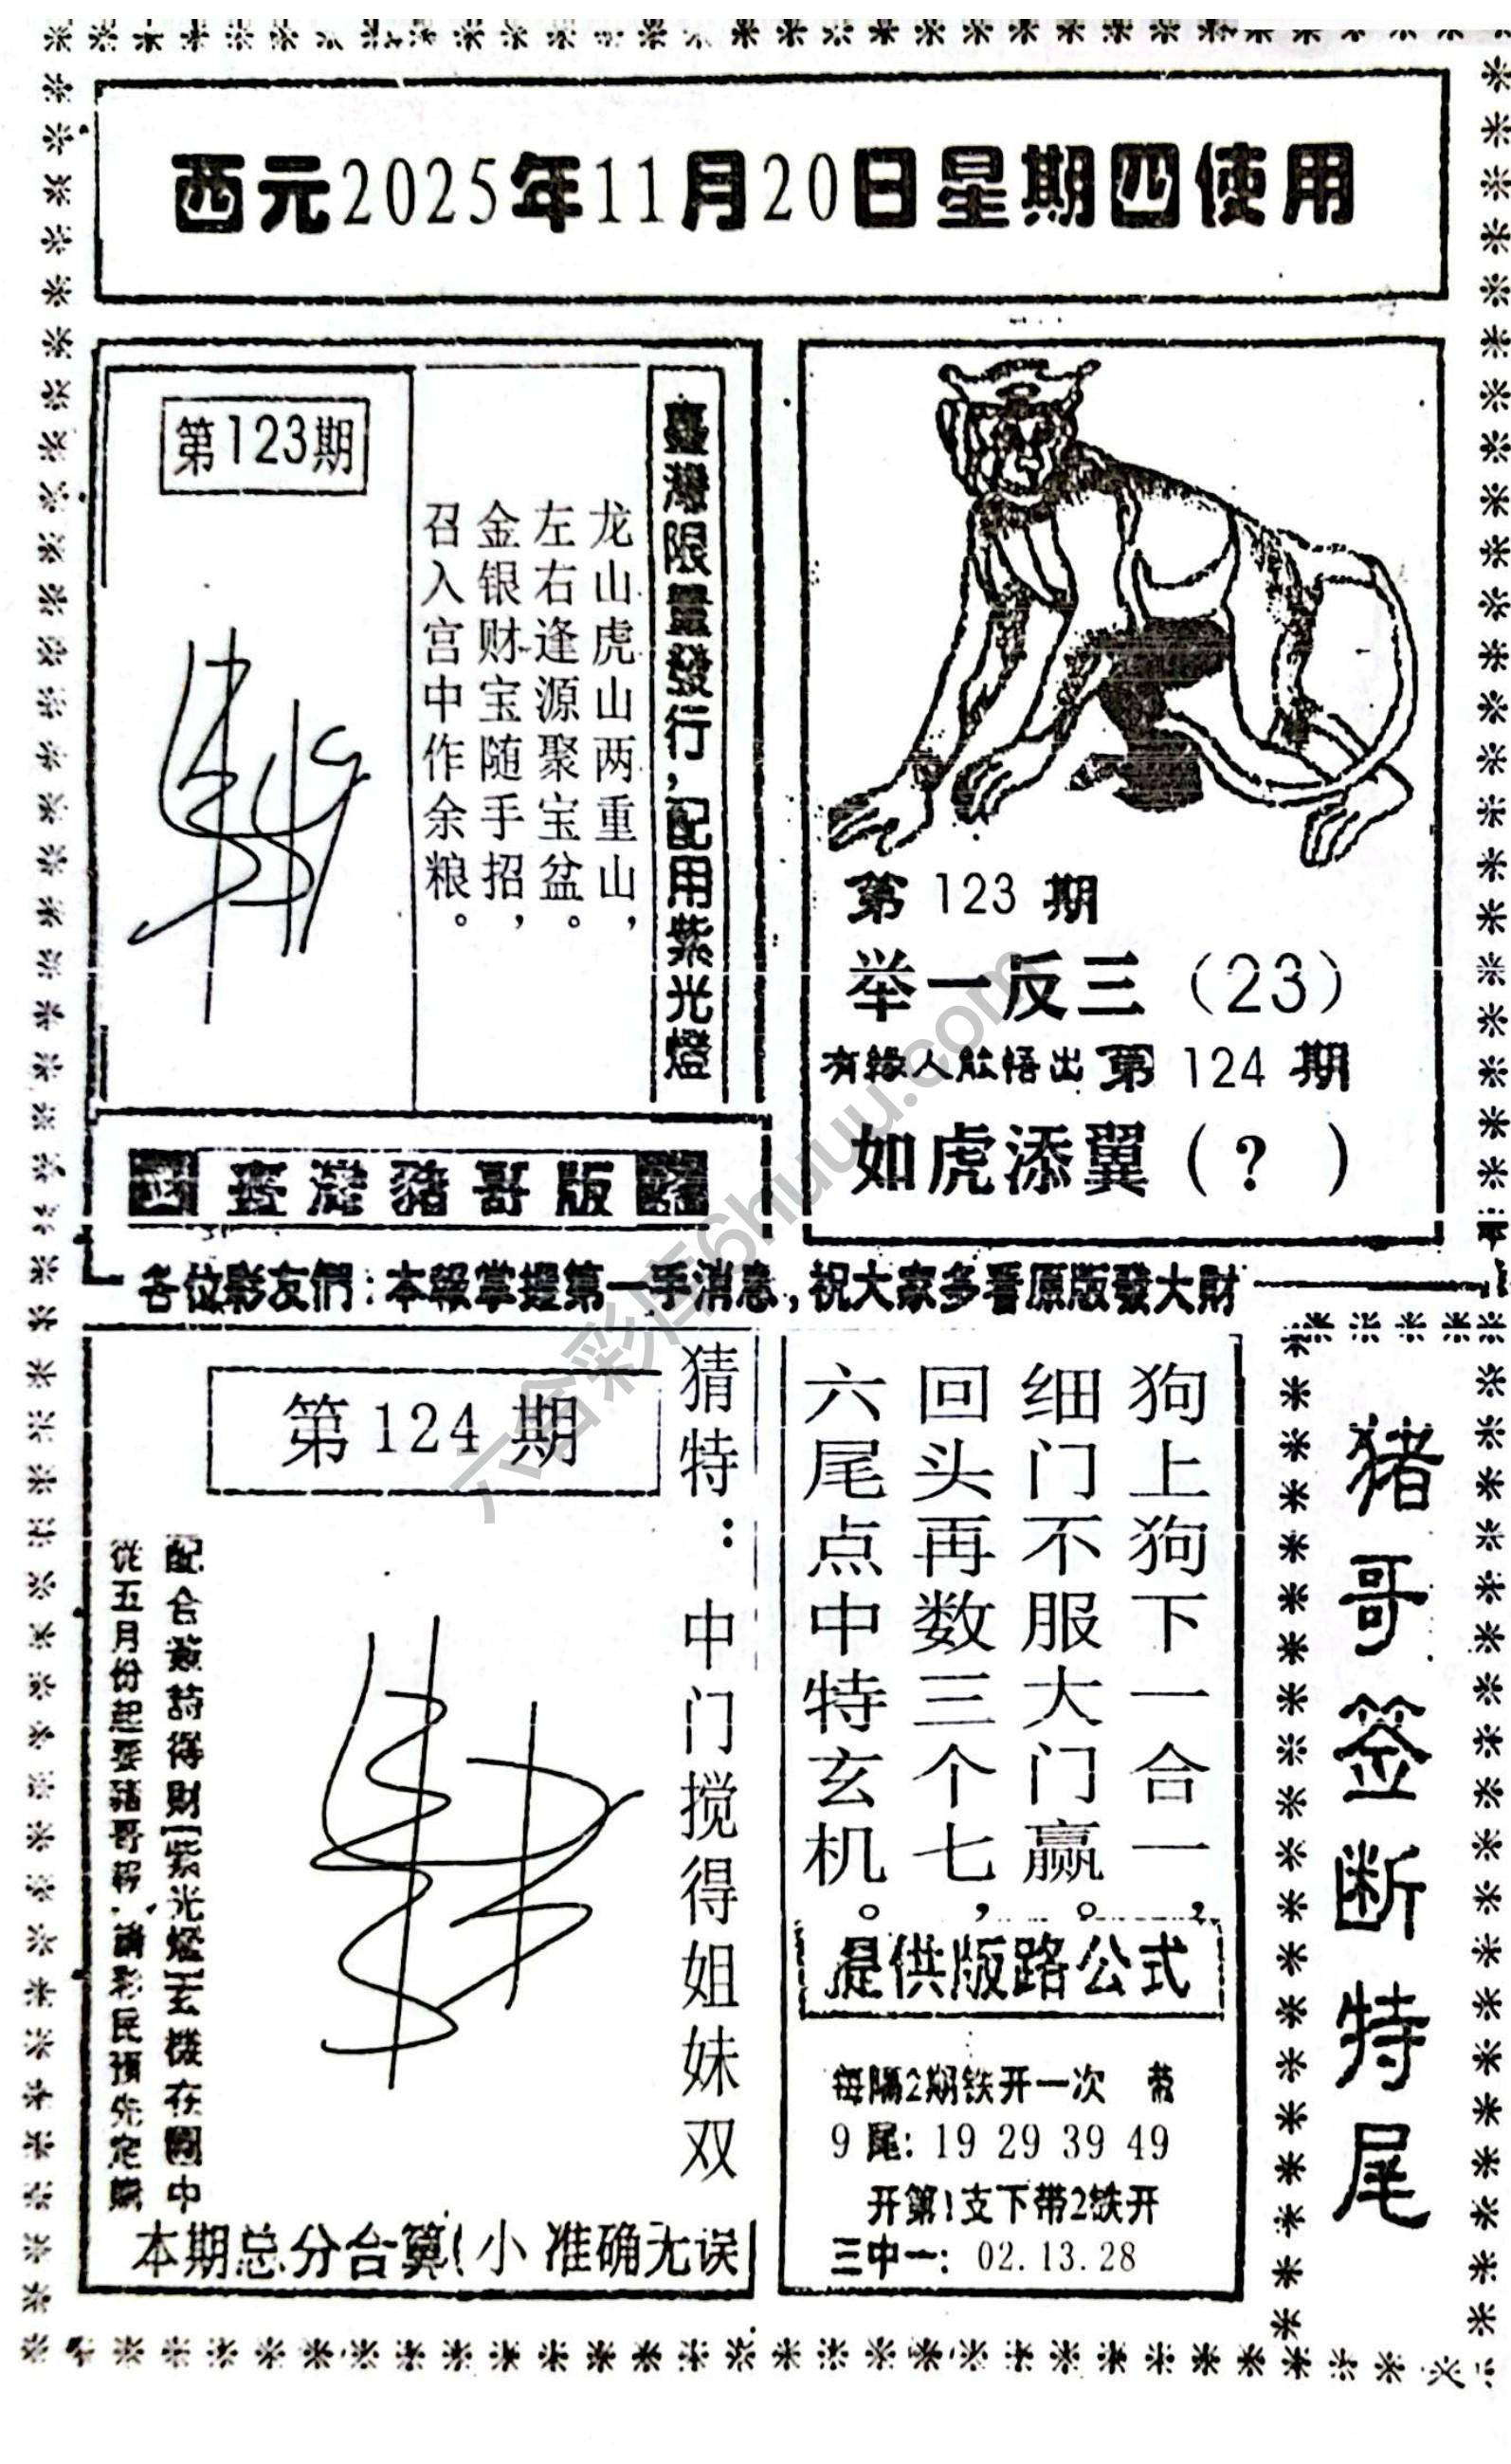 西元2025年11月20日星期四使用
第123期
臺灣限量發行，配用紫光燈
龙山虎山两重山，
左右逢源聚宝盆。
金银财宝随手招，
召入宫中作余粮。
臺灣豬哥版
第 123 期
举一反三（23）
有緣人能悟出 第 124 期
如虎添翼（? ）
各位彩友們：本報掌握第一手消息，祝大家多看原版發大財
第124期
猜特：中门搅得姐妹双
配合 詩得財[紫光燈]玄機在圖中
從五月份起要豬哥報，請彩民預先定購
本期总分合算（小 准确无误
狗上狗下一合一，
细门不服大门赢。
回头再数三个七，
六尾点中特玄机。
提供版路公式
每隔2期铁开一次 带
9尾: 19 29 39 49
开第1支下带2铁开
三中一: 02.13.28
猪哥签断特尾
六合彩库6huuu.com